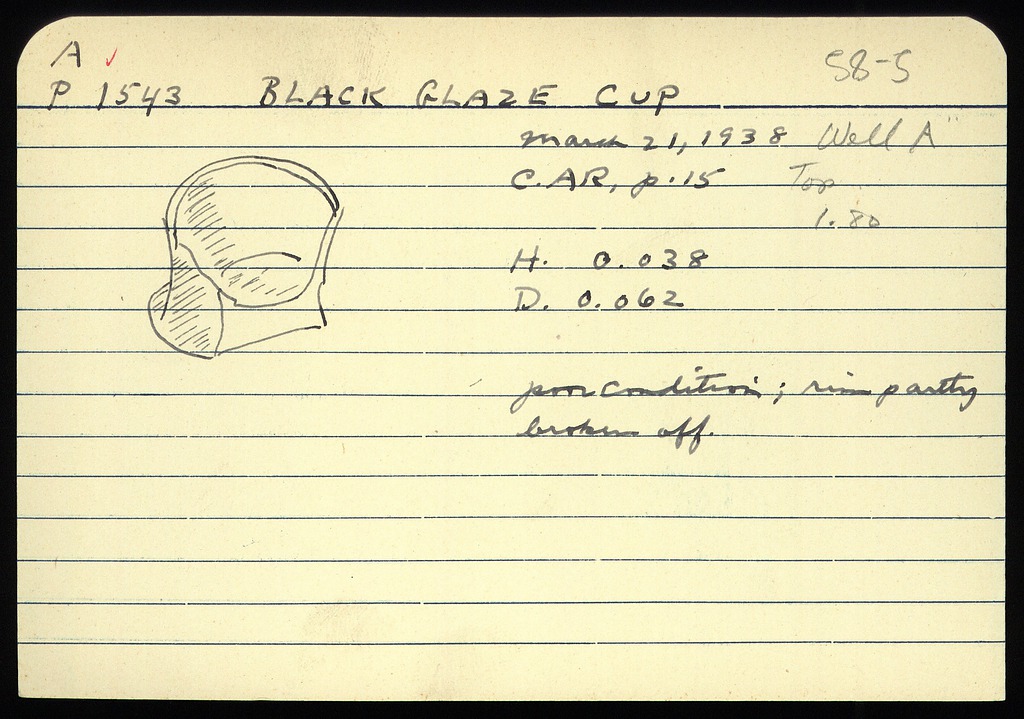 A ✓ 58-5
P 1543 BLACK GLAZE CUP
March 21, 1938 Well A
C.AR, p.15 Top
1.80
H. 0.038
D. 0.062
poor condition; rim partly
broken off.